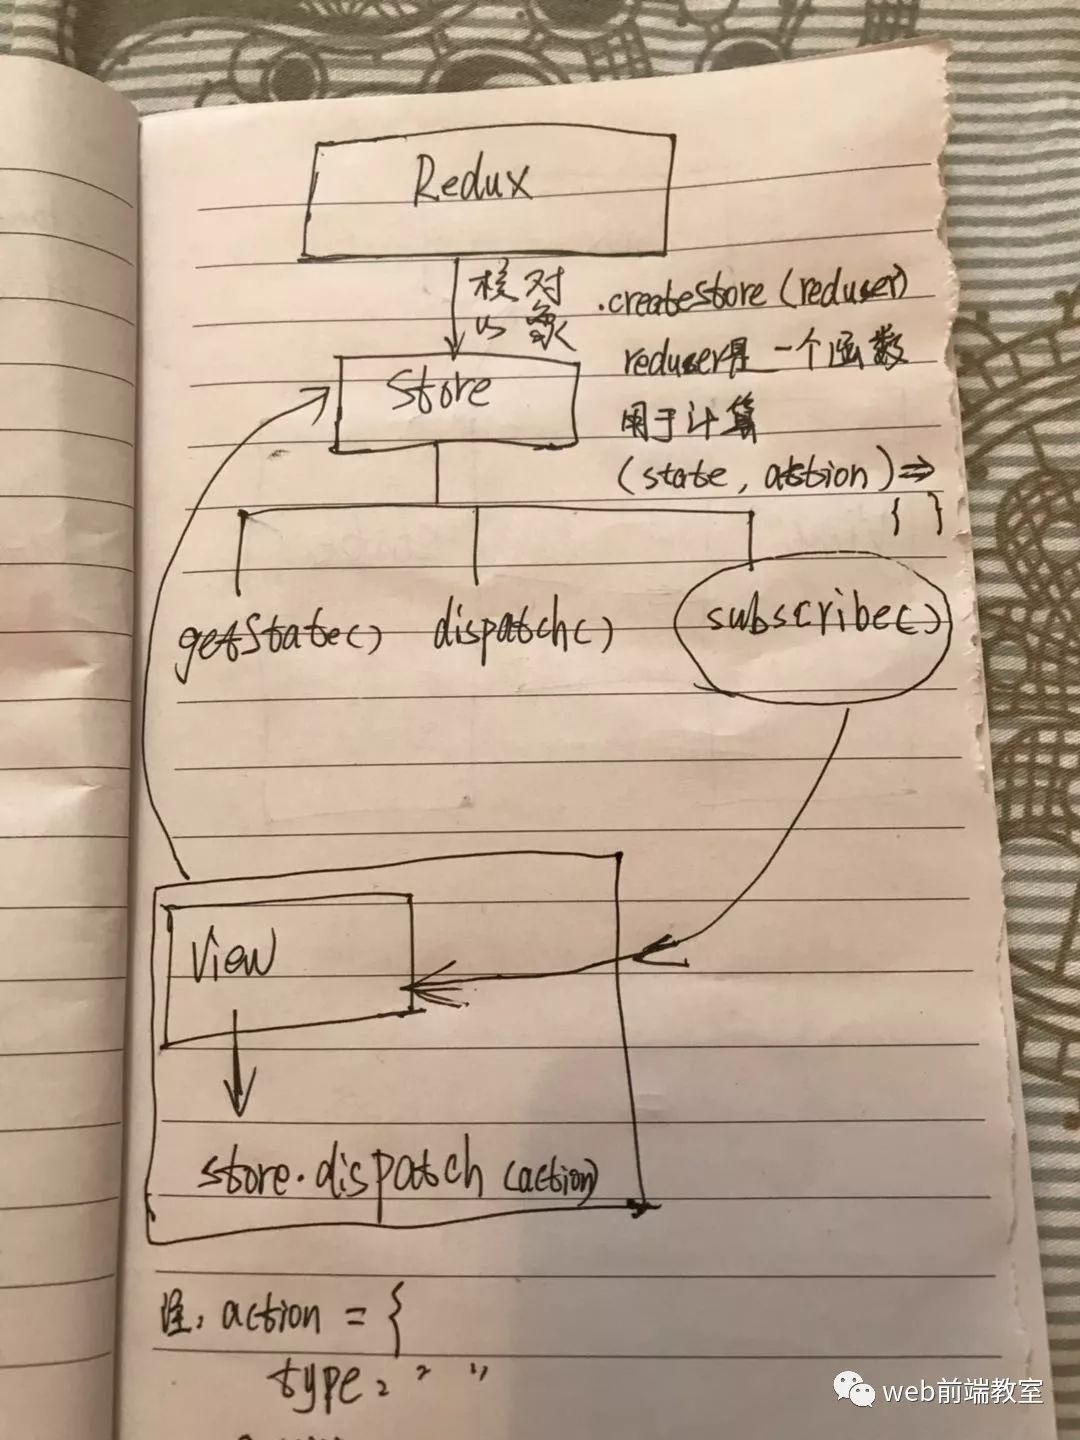 Redux
核心对象
.createStore (reduser)
reduser是一个函数
用于计算
(state, action) =>
{ }
Store
getState()
dispatch()
subscribe()
View
store.dispatch (action)
注: action = {
type: " "
web前端教室